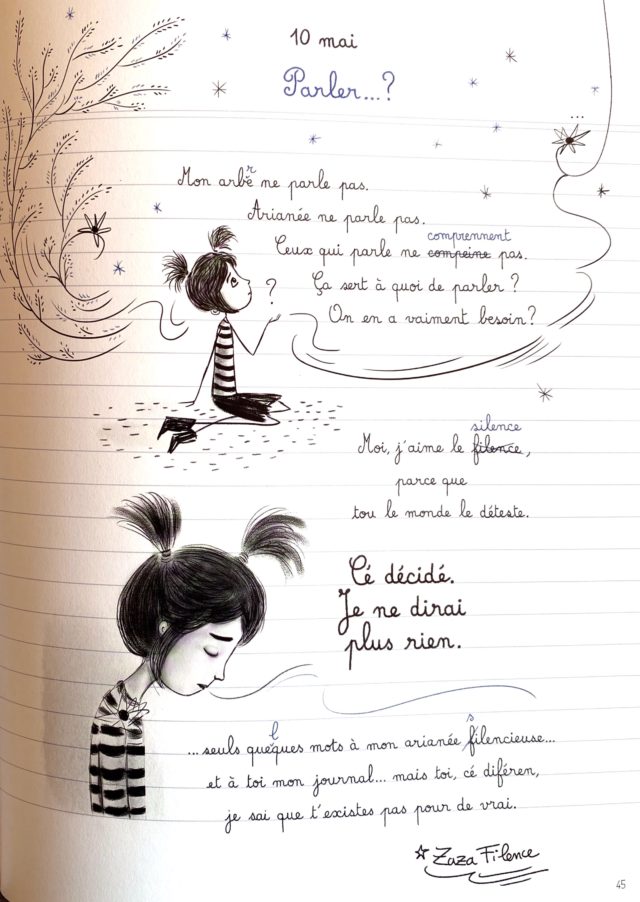 10 mai
Parler...?
...
r
Mon arbe ne parle pas.
Arianée ne parle pas.
comprennent
Ceux qui parle ne compeine pas.
Ça sert à quoi de parler ?
?
On en a vaiment besoin ?
silence
Moi, j'aime le filence,
parce que
tou le monde le déteste.
Cé décidé.
Je ne dirai
plus rien.
l s
... seuls queques mots à mon arianée filencieuse...
et à toi mon journal... mais toi, cé diféren,
je sai que t'existes pas pour de vrai.
Zaza Filence
45